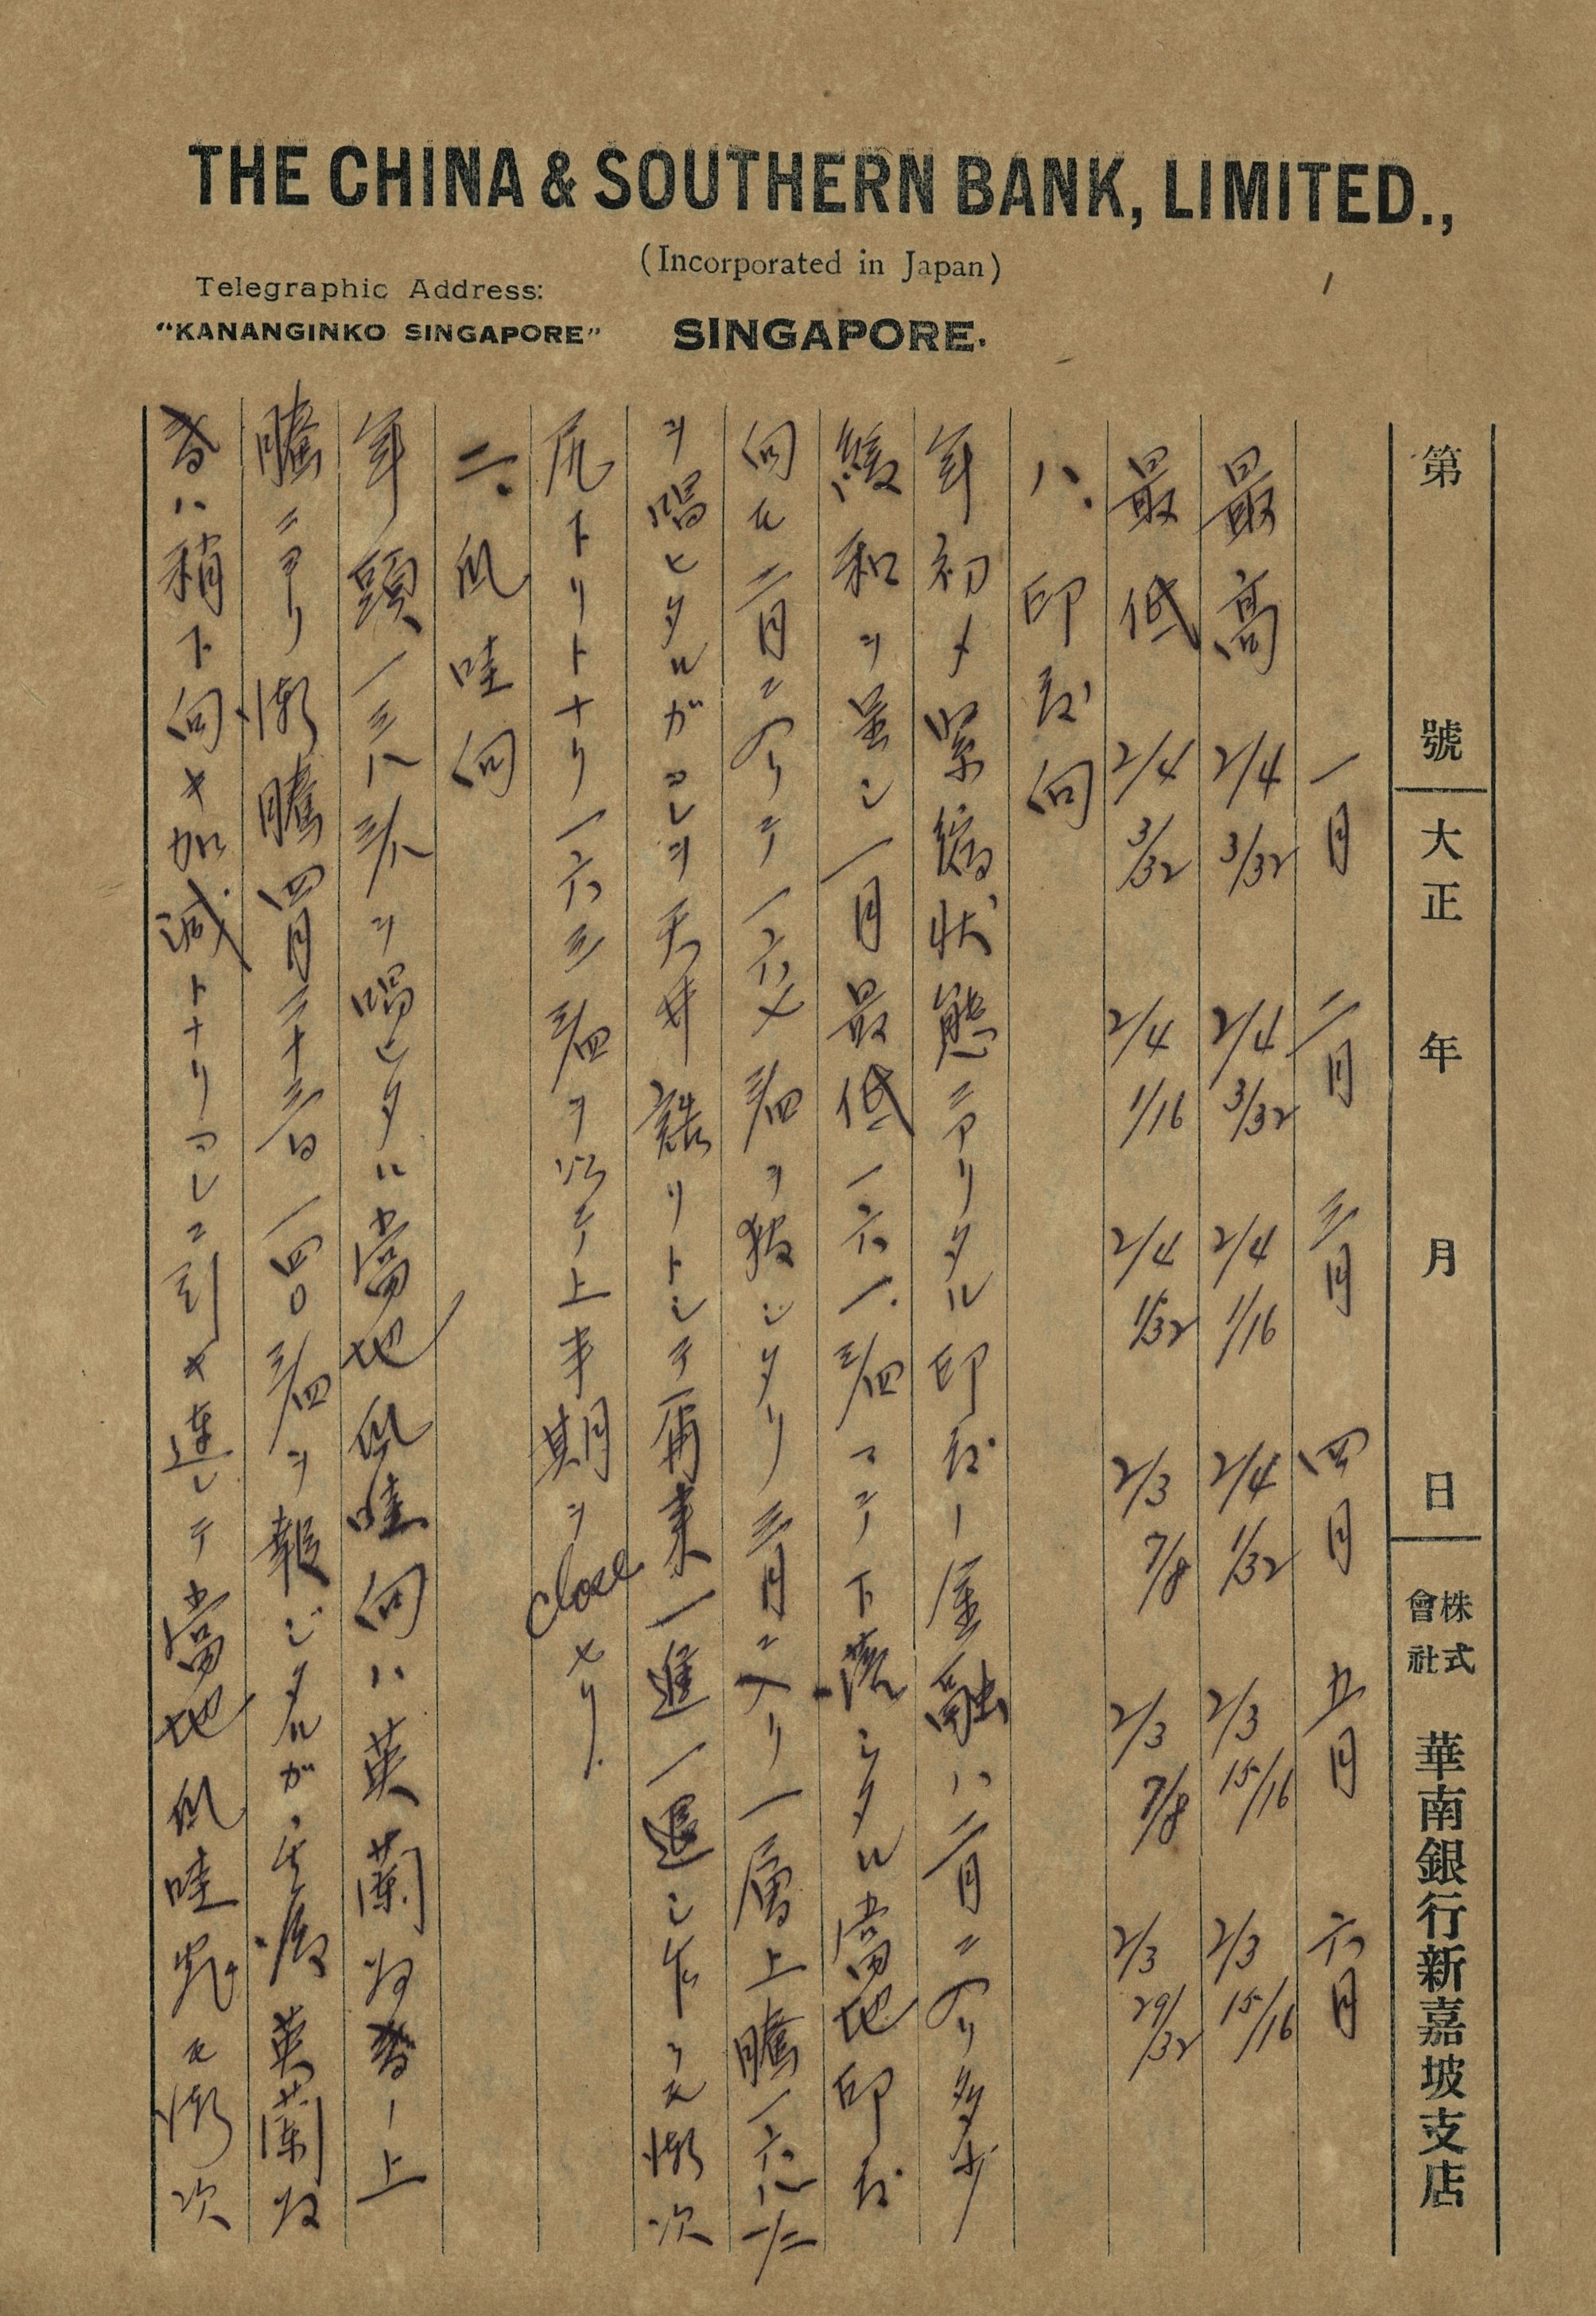 THE CHINA & SOUTHERN BANK, LIMITED.,
(Incorporated in Japan)
Telegraphic Address:
"KANANGINKO SINGAPORE"
SINGAPORE.
第 號 大正 年 月 日 株式會社 華南銀行新嘉坡支店
一月 二月 三月 四月 五月 六月
最高 2/4 3/32 2/4 3/32 2/4 1/16 2/4 1/32 2/3 15/16 2/3 15/16
最低 2/4 3/32 2/4 1/16 2/4 1/32 2/3 7/8 2/3 7/8 2/3 29/32
ハ、印度向
年初メ緊縮状態ニアリタル印度ノ金融ハ二月ニ入リ多少
緩和ヲ呈シ一月最低一六一、三/四マデ下落シタル當地印度
向モ二月ニ入リテ一六七 三/四ヲ報ジタリ三月ニ入リ一層上騰一六八 一/二
ヲ唱ヒタルガコレヲ天井詰リトシテ再来一進一退シ乍ラモ漸次
尻下リトナリ一六三 三/四ヲ以テ上半期ヲcloseセリ.
二、爪哇向
年頭一三八 三/八ヲ唱ヒタル當地爪哇向ハ英蘭為替ノ上
騰ニヨリ漸騰四月二十三日一四〇 三/四ヲ報ジタルガ、其後英蘭為
替ハ稍下向キ加減トナリコレニ引キ連レテ當地爪哇宛モ漸次